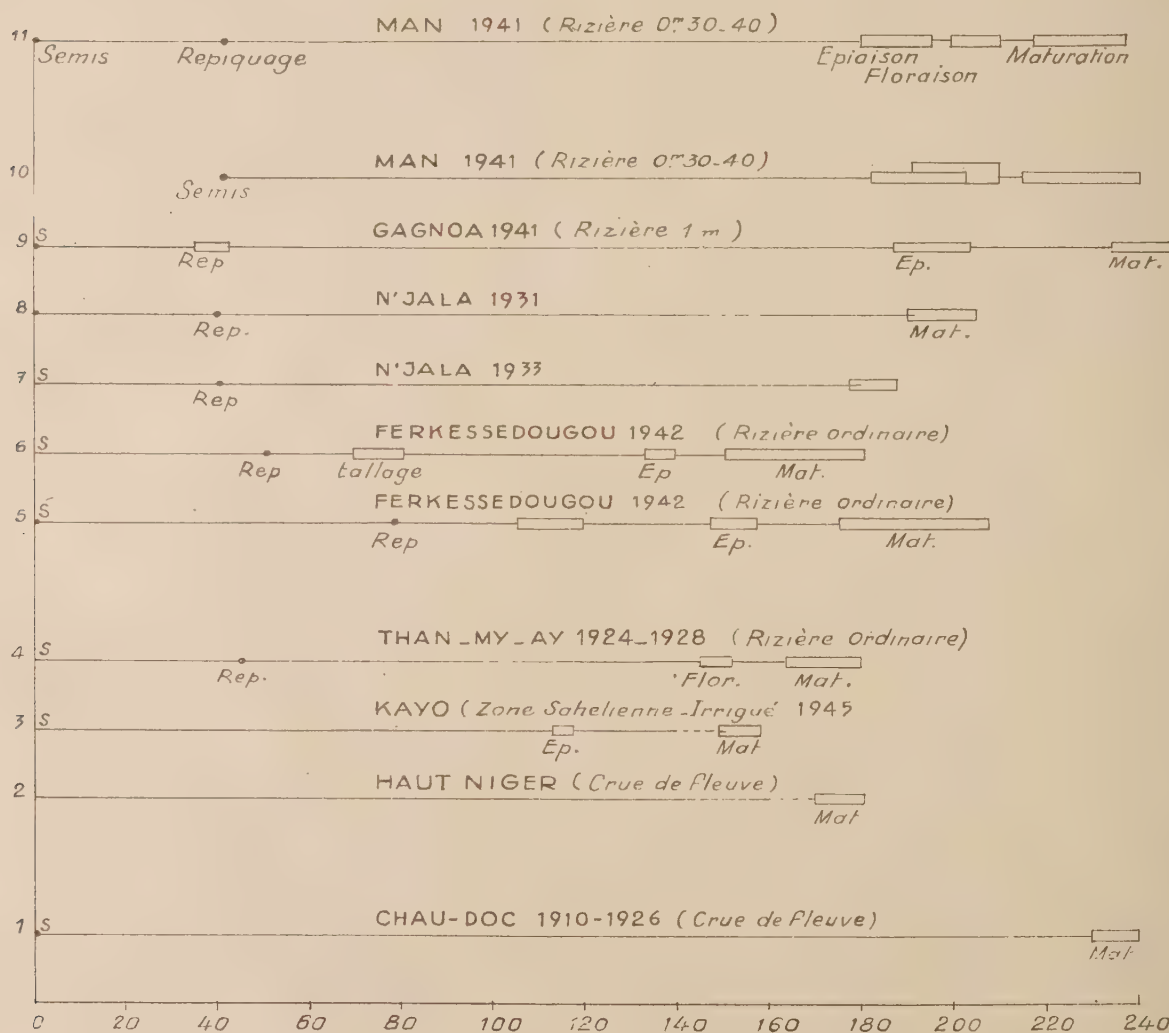 MAN 1941 (Rizière 0m30-40)
11
Semis Repiquage Epiaison Maturation
Floraison
MAN 1941 (Rizière 0m30-40)
10
Semis
GAGNOA 1941 (Rizière 1 m)
9 S
Rep Ep. Mat.
N'JALA 1931
8
Rep. Mat.
N'JALA 1933
7 S
Rep
FERKESSEDOUGOU 1942 (Rizière ordinaire)
6 S
Rep tallage Ep Mat.
FERKESSEDOUGOU 1942 (Rizière ordinaire)
5 S
Rep Ep. Mat.
THAN-MY-AY 1924-1928 (Rizière Ordinaire)
4 S
Rep. Flor. Mat.
KAYO (Zone Sahelienne-Irrigué 1945
3 S
Ep. Mat
HAUT NIGER (Crue de fleuve)
2
Mat
CHAU-DOC 1910-1926 (Crue de fleuve)
1 S
Mat
0 20 40 60 80 100 120 140 160 180 200 220 240